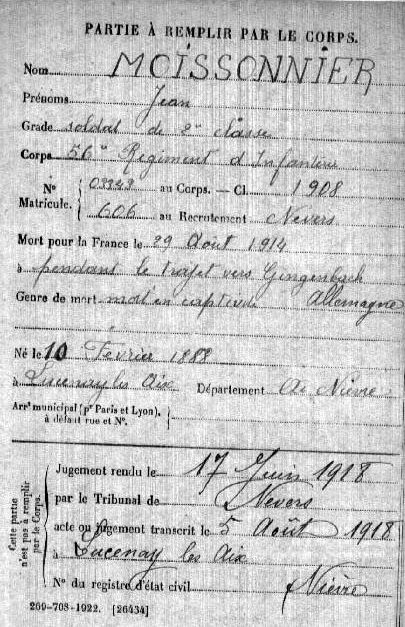 PARTIE À REMPLIR PAR LE CORPS.
Nom MOISSONNIER
Prénoms Jean
Grade soldat de 2e classe
Corps 56e Régiment d'Infanterie
N° Matricule. { 03343 au Corps. — Cl. 1908
606 au Recrutement Nevers
Mort pour la France le 29 Août 1914
à pendant le trajet vers Gingenbach
Genre de mort mort en captivité Allemagne
Né le 10 Février 1888
à Lucenay les Aix Département de Nièvre
Arr' municipal (p' Paris et Lyon),
à défaut rue et N°.
Cette partie n'est pas à remplir par le Corps.
Jugement rendu le 17 Juin 1918
par le Tribunal de Nevers
acte ou jugement transcrit le 5 Août 1918
à Lucenay les Aix
N° du registre d'état civil Nièvre
269-708-1922. [26434]